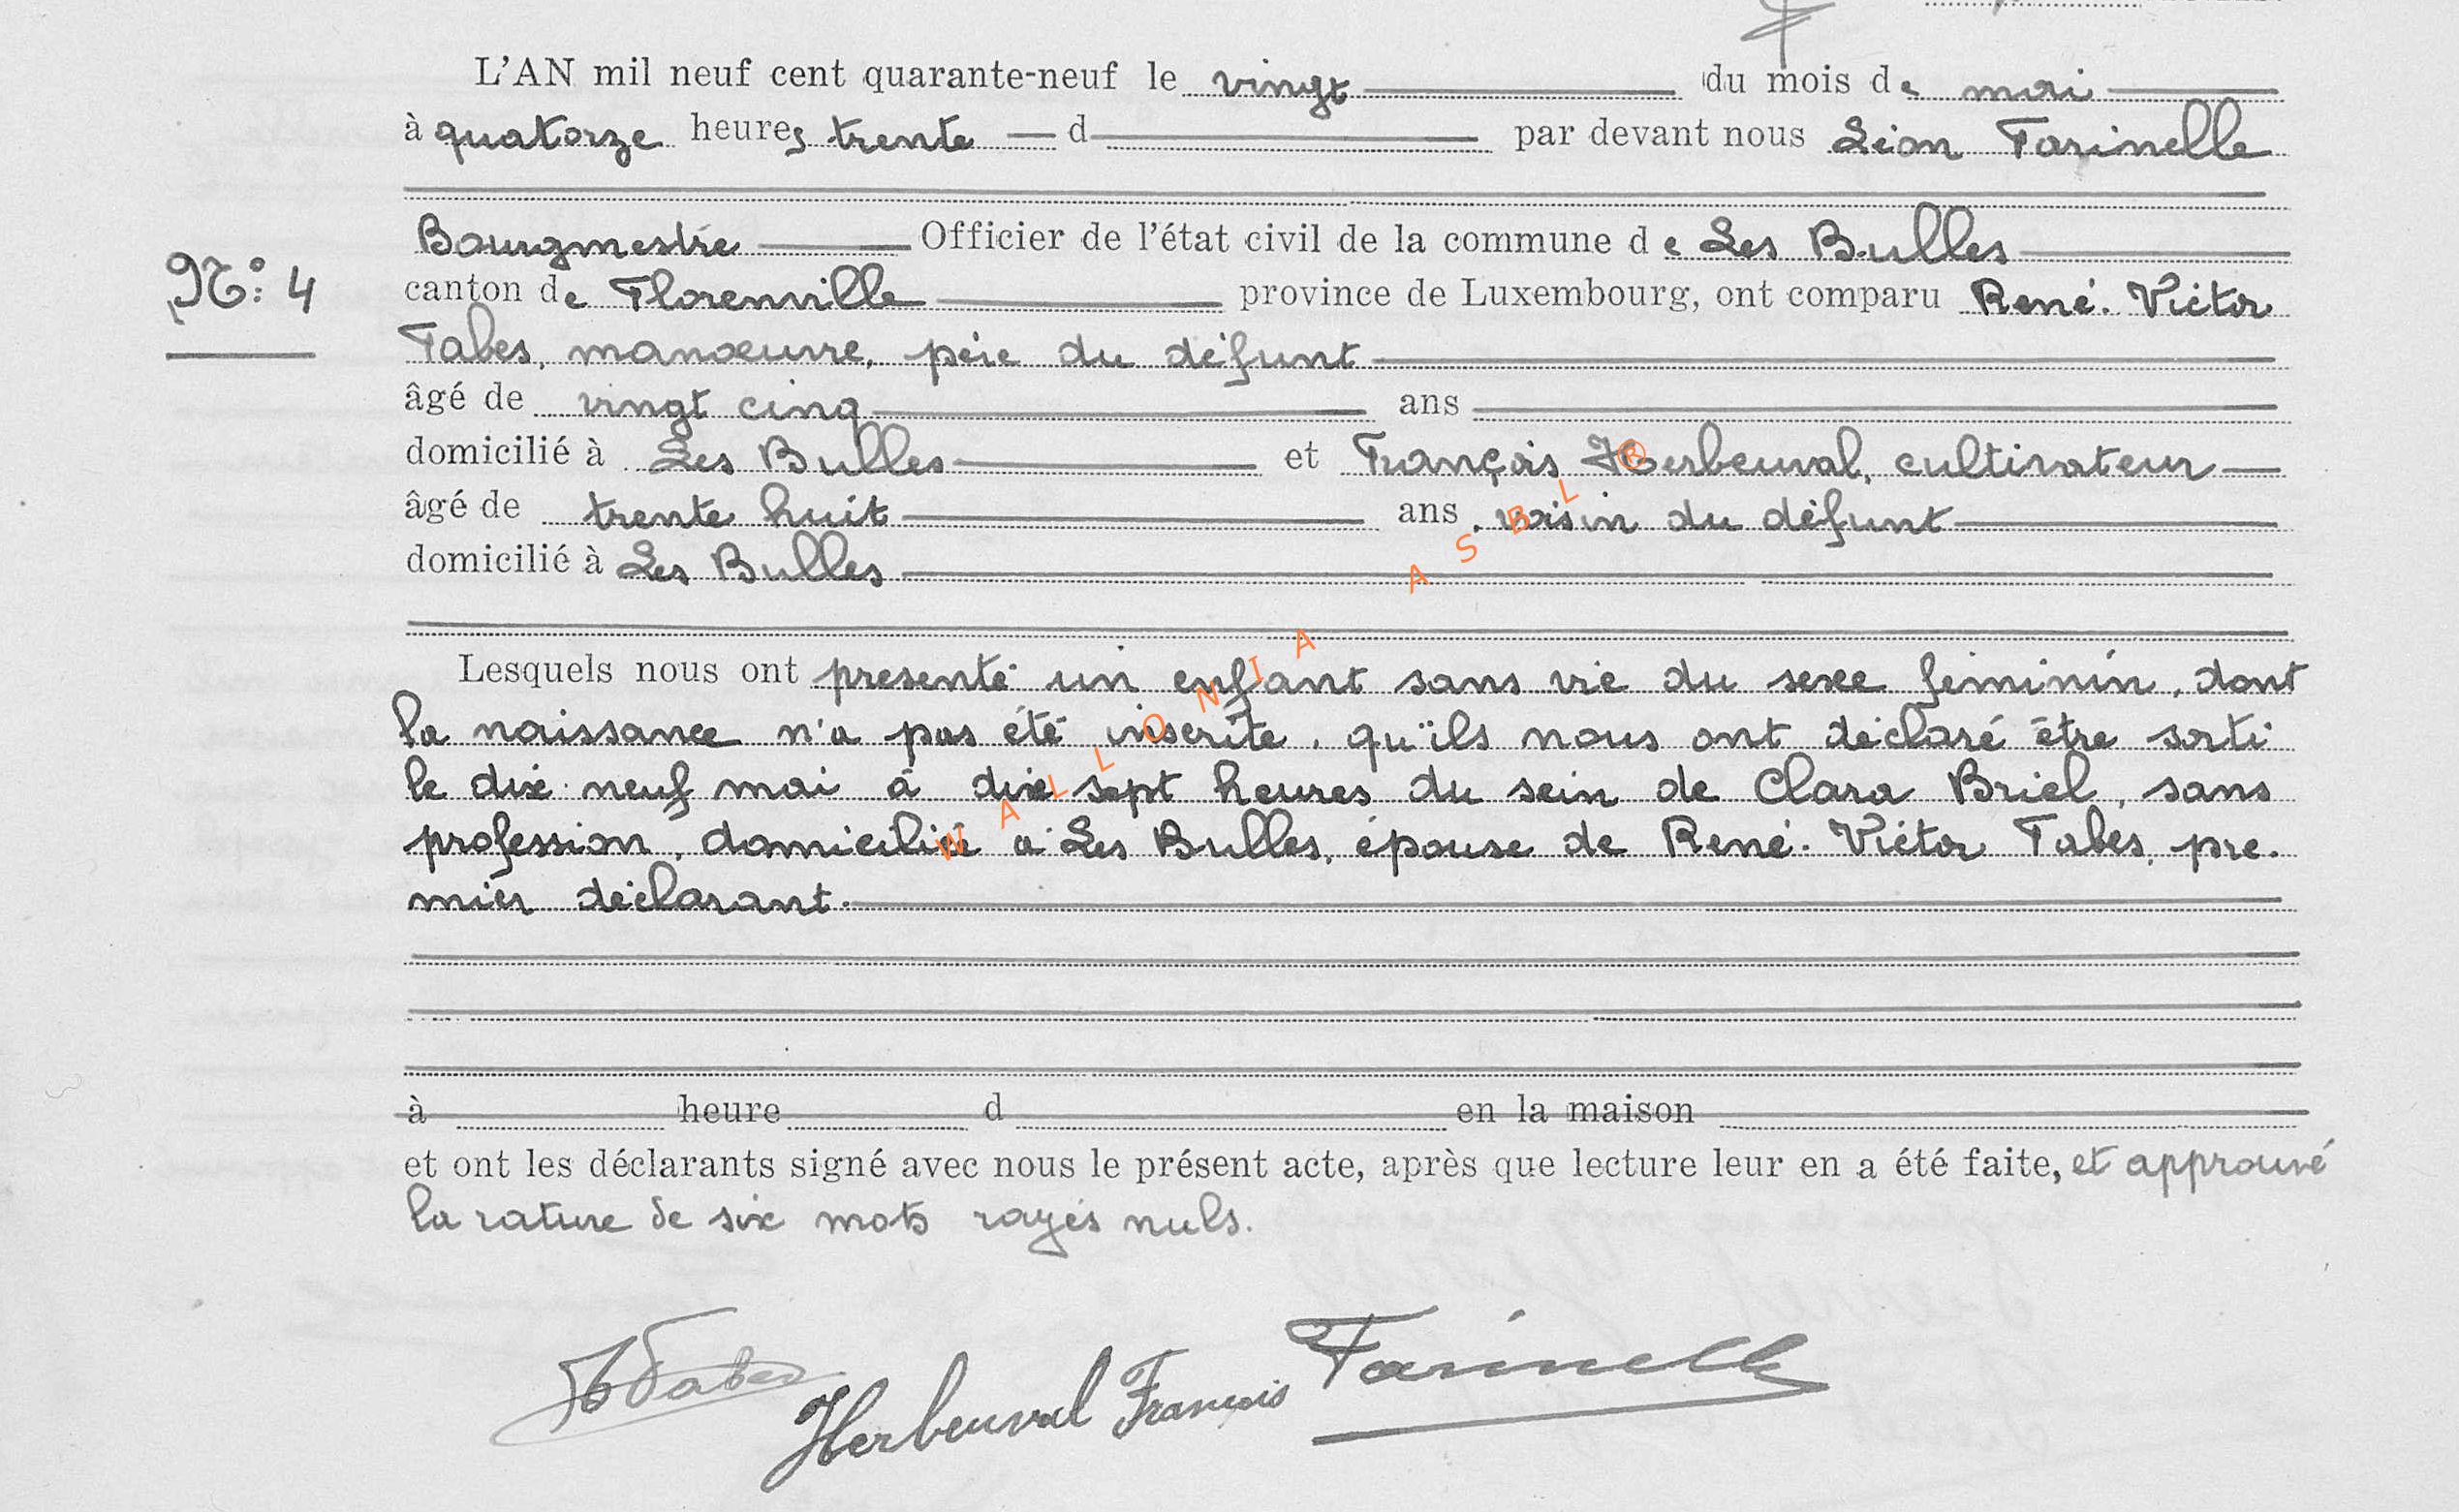 L'AN mil neuf cent quarante-neuf le vingt du mois de mai
à quatorze heures trente d par devant nous Léon Farinelle
Bourgmestre Officier de l'état civil de la commune de Les Bulles
N°: 4
canton de Florenville province de Luxembourg, ont comparu René. Victor
Tabes, manœuvre, père du défunt
âgé de vingt cinq ans
domicilié à Les Bulles et François Herbeuval, cultivateur
âgé de trente huit ans, voisin du défunt
domicilié à Les Bulles
Lesquels nous ont présenté un enfant sans vie du sexe féminin, dont
la naissance n'a pas été inscrite, qu'ils nous ont déclaré être sorti
le dix neuf mai à dix sept heures du sein de Clara Briel, sans
profession, domiciliée à Les Bulles, épouse de René. Victor Tabes, pre-
mier déclarant.
à heure d en la maison
et ont les déclarants signé avec nous le présent acte, après que lecture leur en a été faite, et approuvé
la rature de six mots rayés nuls.
Tabes
Herbeuval François
Farinelle
WALLONIA ASBL ®